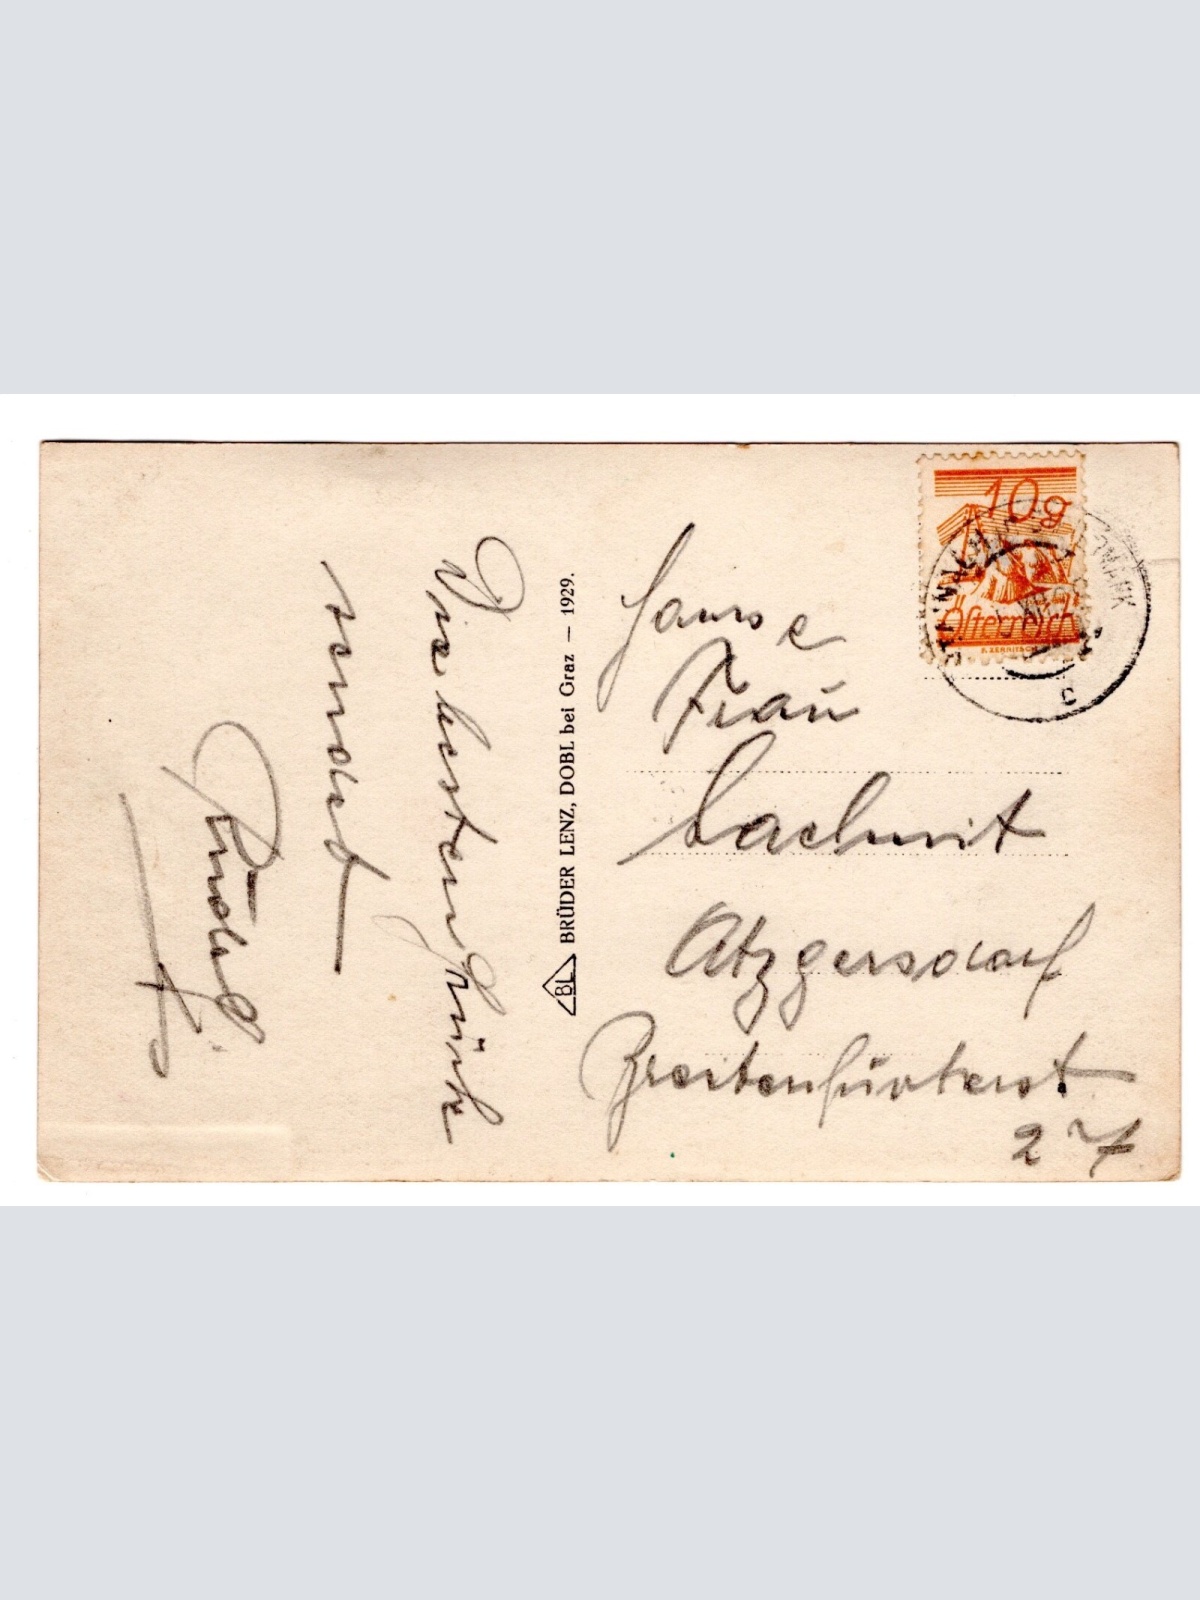 Die besten Grüße
sendet
BRÜDER LENZ, DOBL bei Graz — 1929.
BL
10g
Österreich
Frau
Lachnit
Atzgersdorf
Breitenfurterst
27